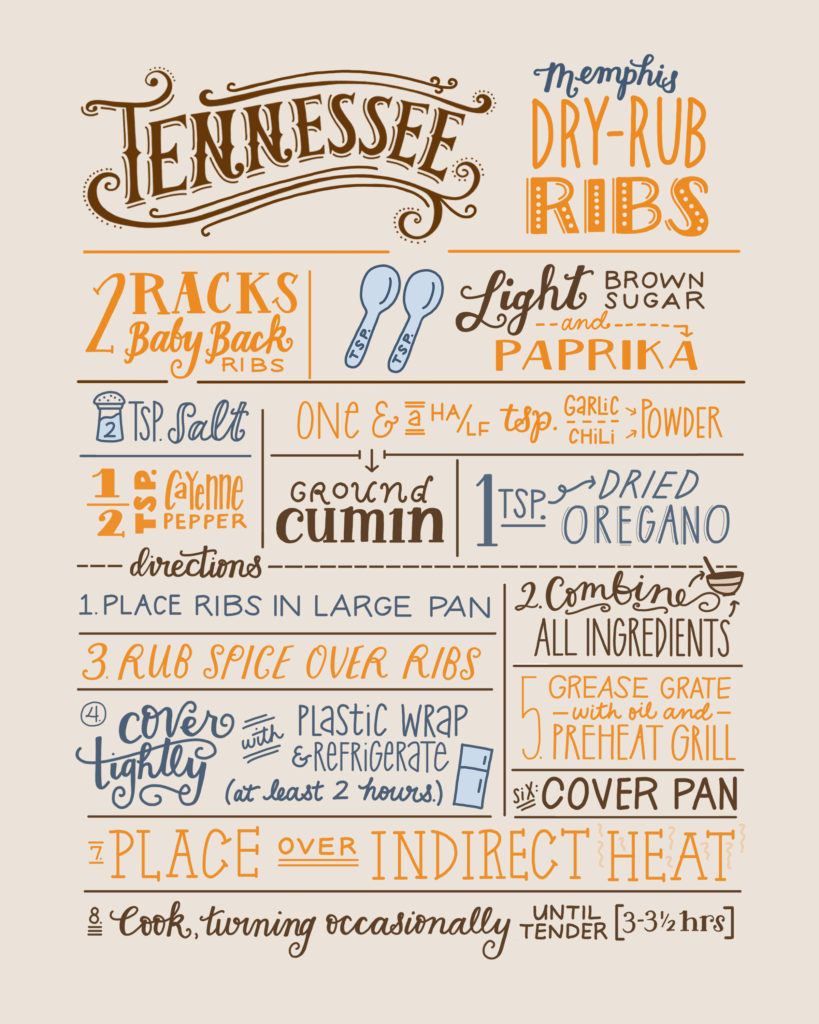 TENNESSEE
Memphis
DRY-RUB
RIBS
2 RACKS
Baby Back
RIBS
TSP.
TSP.
Light BROWN
SUGAR
and
PAPRIKA
2 TSP. Salt
ONE & a HA/LF tsp. GARLIC CHILI POWDER
1/2 TSP. CAYENNE
PEPPER
GROUND
cumin
1 TSP. DRIED
OREGANO
directions
1. PLACE RIBS IN LARGE PAN
2. Combine
ALL INGREDIENTS
3. RUB SPICE OVER RIBS
4. cover
tightly
with
PLASTIC WRAP
& REFRIGERATE
(at least 2 hours.)
5. GREASE GRATE
with oil and
PREHEAT GRILL
SIX: COVER PAN
7. PLACE OVER INDIRECT HEAT
8. Cook, turning occasionally UNTIL
TENDER [3-3½ hrs]